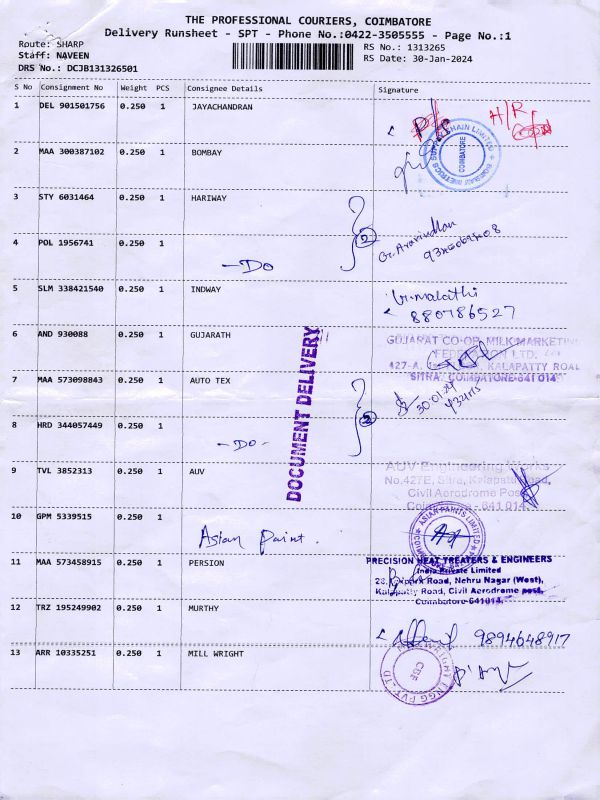 THE PROFESSIONAL COURIERS, COIMBATORE
Delivery Runsheet - SPT - Phone No.:0422-3505555 - Page No.:1
Route: SHARP
Staff: NAVEEN
DRS No.: DCJB131326501
RS No.: 1313265
RS Date: 30-Jan-2024
S No Consignment No Weight PCS Consignee Details Signature
1 DEL 901501756 0.250 1 JAYACHANDRAN
H/R
COIMBATORE
2 MAA 300387102 0.250 1 BOMBAY
3 STY 6031464 0.250 1 HARIWAY
2
4 POL 1956741 0.250 1 -Do
G.Aravindhan
5 SLM 338421540 0.250 1 INDWAY
V.malathi
880786527
6 AND 930088 0.250 1 GUJARATH
GUJARAT CO-OP. MILK MARKETING
FEDERATION LTD.
427-A, KALAPATTY ROAD
SITRA, COIMBATORE-641 014.
DOCUMENT DELIVERY
7 MAA 573098843 0.250 1 AUTO TEX
30.01.24
2
8 HRD 344057449 0.250 1 -Do-
9 TVL 3852313 0.250 1 AUV
AUV Engineering Works
No.427E, Sitra, Kalapatti Road,
Civil Aerodrome Post,
Coimbatore - 641 014.
10 GPM 5339515 0.250 1 Asian Paint.
ASIAN PAINTS LIMITED
11 MAA 573458915 0.250 1 PERSION
PRECISION HEAT TREATERS & ENGINEERS
India Private Limited
Road, Nehru Nagar (West),
Kalapatty Road, Civil Aerodrome post,
Coimbatore-641014.
12 TRZ 195249902 0.250 1 MURTHY
9894648917
13 ARR 10335251 0.250 1 MILL WRIGHT
CBE